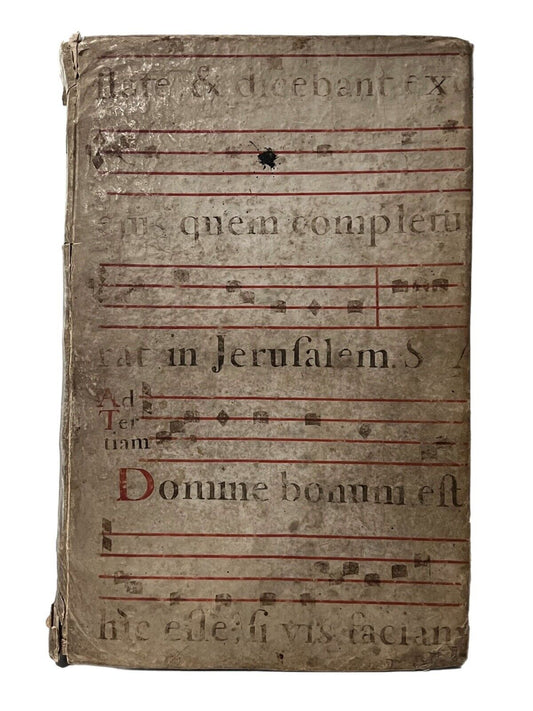 ſtate, & dicebant ex
ejus quem completu
rat in Jeruſalem. S
Ad
Ter
tiam
Domine bonum eſt
hîc eſſe: ſi vis facian